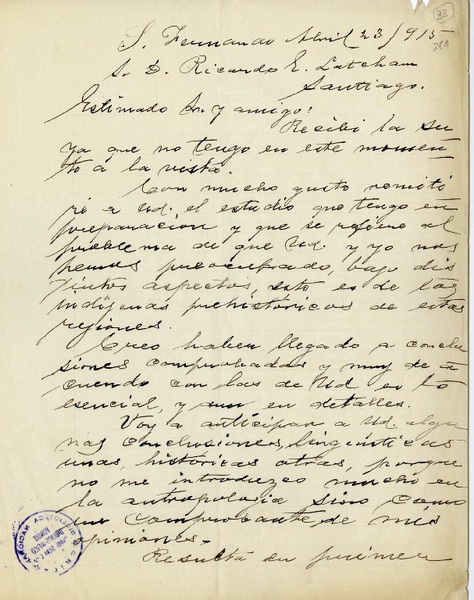 33
S. Fernando Abril 23/915
S. D. Ricardo E. Latcham
Santiago.
Estimado Sr. y amigo:
Recibí la su
ya que no tengo en este momen
to a la vista.
Con mucho gusto remiti
ré a Ud. el estudio que tengo en
preparación y que se refiere al
problema de que Ud. y yo nos
hemos preocupado, bajo dis
tintos aspectos, esto es de los
indíjenas prehistóricos de estas
rejiones.
Creo haber llegado a conclu
siones comprobadas y muy de a
cuerdo con las de Ud. en lo
esencial, y aun en detalles.
Voy a anticipar a Ud. algu
nas conclusiones, lingüísticas
unas, históricas otras, porque
no me introduzco mucho en
la antropolojía sino como
un comprobante de mis
opiniones.
Resulta en primer